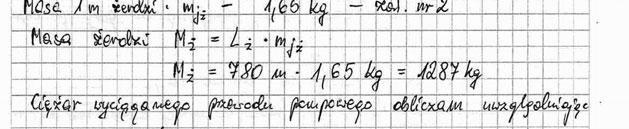 Masa 1 m żerdzi · mjż – 1,65 kg – zał. nr 2
Masa żerdzi Mż = Lż · mjż
Mż = 780 m · 1,65 kg = 1287 kg
Ciężar wyciąganego przewodu pompowego obliczam uwzględniając